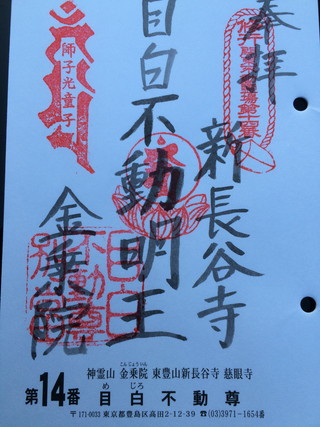 奉拝
新長谷寺
目白不動明王
金乗院
師子光童子
神霊山 金乗院 東豊山新長谷寺 慈眼寺
こんじょういん
第14番 目白不動尊
めじろ
〒171-0033 東京都豊島区高田2-12-39 ☎(03)3971-1654番